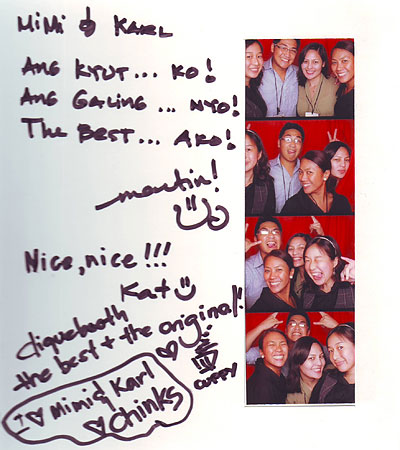 MiMi & KARL
ANG KYUT... KO!
ANG GALING... NYO!
The BEST... AKO!
martin!
Nice, nice!!!
Kat
cliquebooth
the best + the original!
CUPPY
I ♥ Mimi & Karl
♥ chinks